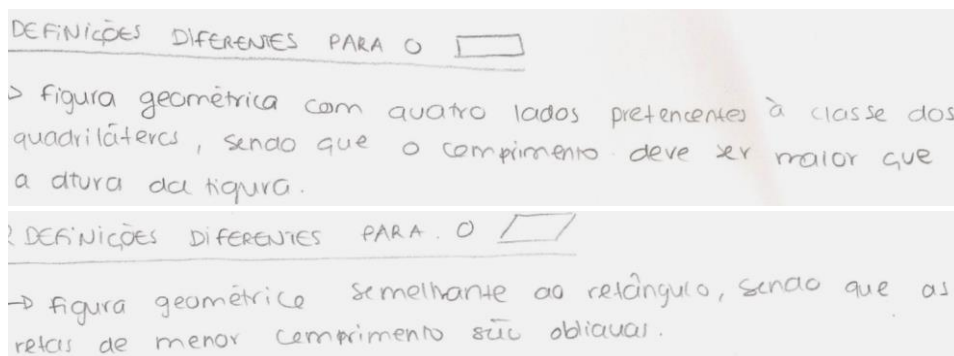 DEFINIÇÕES DIFERENTES PARA O
figura geométrica com quatro lados pretencentes à classe dos
quadriláteros, sendo que o comprimento deve ser maior que
a altura da figura.
DEFINIÇÕES DIFERENTES PARA O
figura geométrica semelhante ao retângulo, sendo que as
retas de menor comprimento são obliquas.